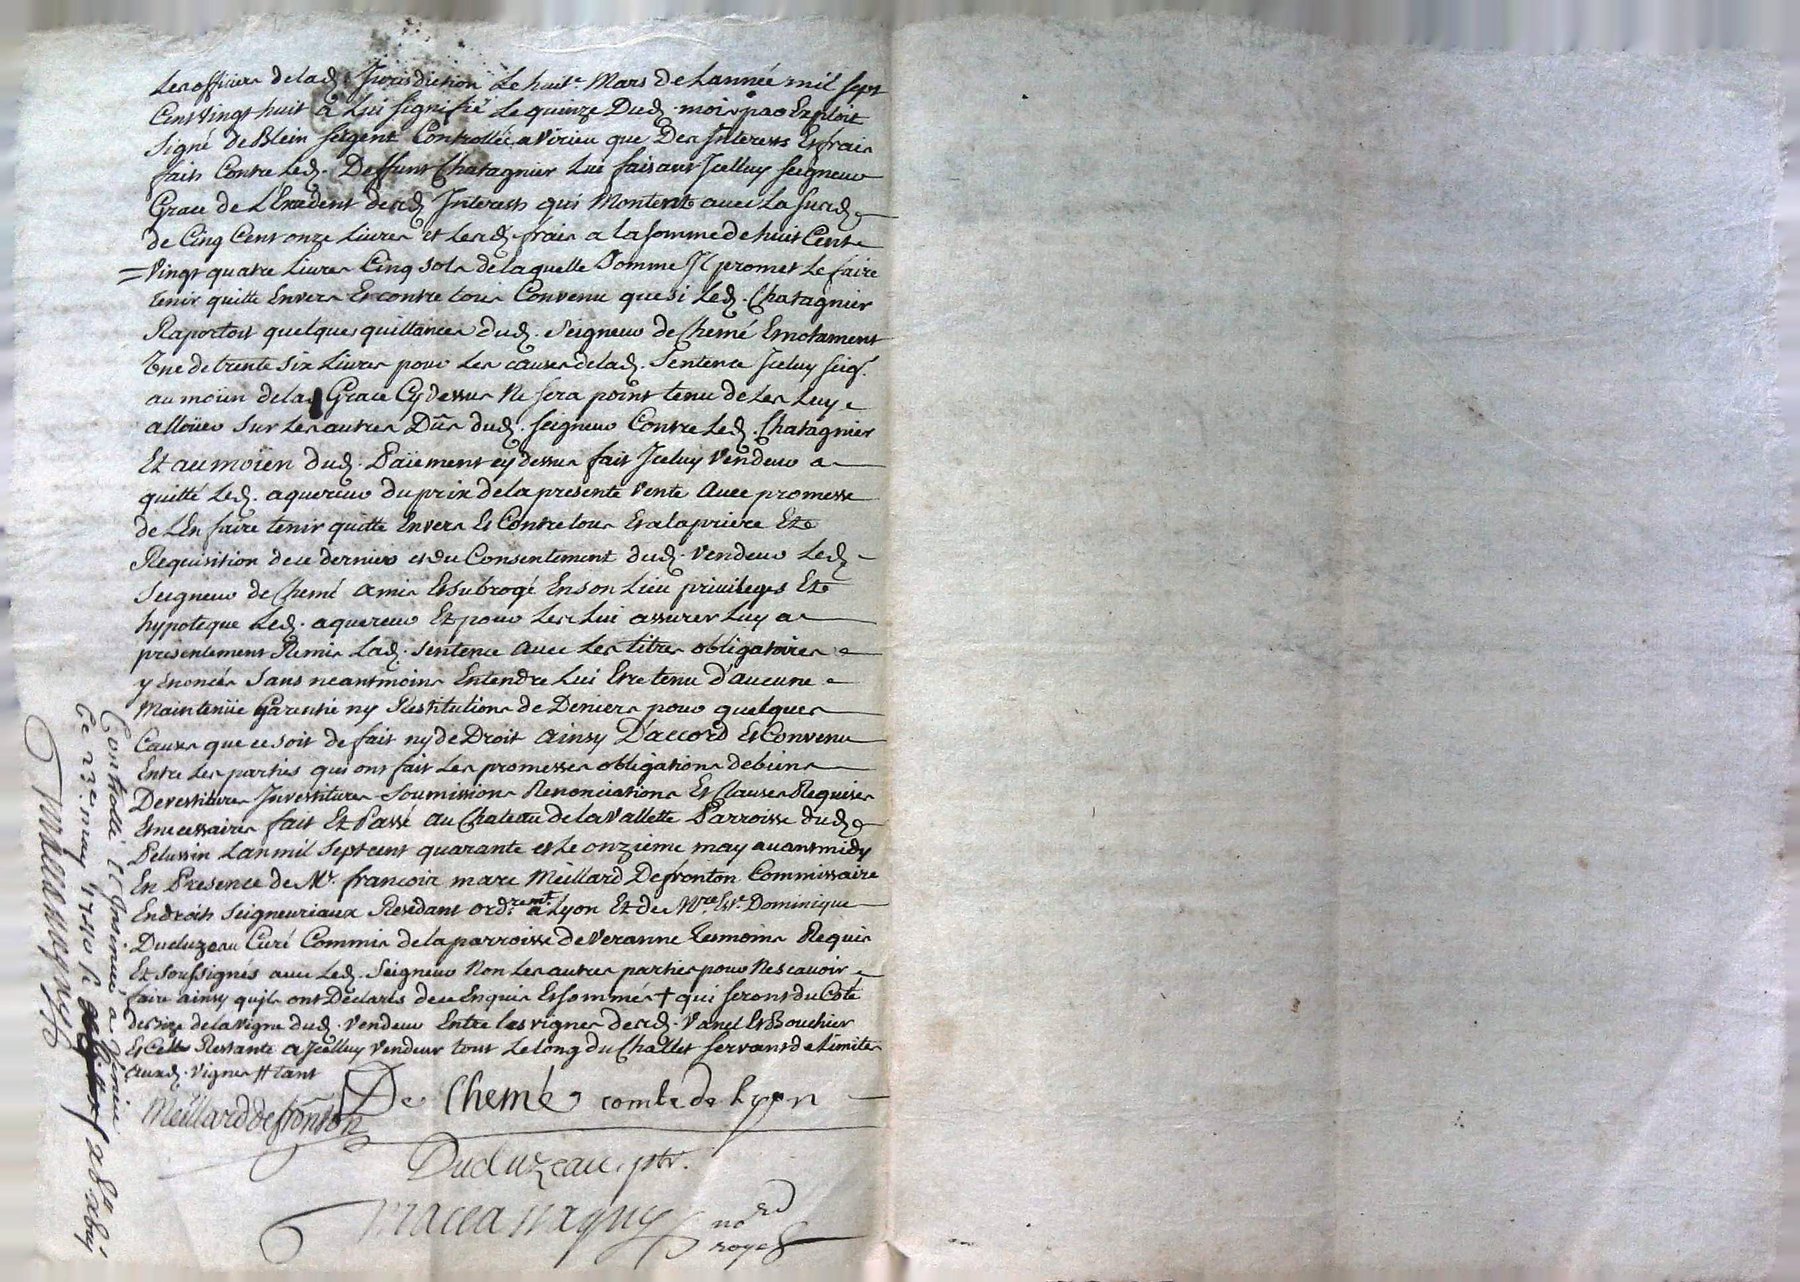 Les officiers de lad. Jurisdiction Le huit.e Mars de Lannée mil sept
Cent vingt huit a Lui signifié Le quinze Dud. mois par Exploit
Signé de Blein sergent Controllée a Virieu que Des Interests Et frais
faits Contre Led. Deffunt Chatagnier Lui faisant Icelluy Seigneur
Grace de L'Exedent desd. Interests qui Montent avec La susd.
de Cinq Cent onze Livres et Lesd. frais a la somme de huit Cent
Vingt quatre Livres Cinq sols de laquelle Somme Il promet Le faire
tenir quitte Envers Et contre tous Convenu que si Led. Chatagnier
Raportoit quelques quittances dud. Seigneur de Chemé Et notament
Une de trente six Livres pour Les causes de lad. Sentence Iceluy seig.r
au moïen de la Grace Cy dessus Ne sera point tenu de Les Luy
alloüer sur Les autres Dûs dud. seigneur Contre Led. Chatagnier
Et au moïen dud. Païement cy dessus fait Iceluy Vendeur a
quitté Led. aquereur du prix de la presente Vente avec promesse
de L'En faire tenir quitte Envers Et Contre tous Et a la priere Et
Requisition de ce dernier et du Consentement dud. Vendeur Led.
Seigneur de Chemé a mis Et subrogé En son Lieu privileges Et
hypoteque Led. aquereur Et pour Les Lui assurer Luy a
presentement Remis Lad. sentence avec Les titres obligatoires
y Enoncés sans neantmoins Entendre Lui Etre tenu d'aucune
Maintenüe Garentie ny Restitutions de Deniers pour quelques
Causes que ce soit de fait ny de Droit ainsy D'accord Et Convenu
Entre Les parties qui ont fait Les promesses obligations de biens
Devestitures Investitures Soumissions Renonciations Et Clauses Requises
Et necessaires fait Et Passé au Chateau de la Vallette Parroisse dud.
Pelussin Lan mil sept cent quarante et Le onzieme may avant midy
En Presence de M.r francois marc Meillard Defronton Commissaire
En droits seigneuriaux Residant ord.remt a Lyon Et de M.re Dominique
Ducluzeau Curé Commis de la parroisse de Veranne Tesmoins Requis
Et soussignés avec Led. Seigneur Non Les autres parties pour Ne scavoir
faire ainsy qu'ils ont Declarés de ce Enquis Et sommés + qui seront du Coté
de bize de la vigne dud. Vendeur Entre les vignes desd. Vanel Et Bouchier
Et Celle Restante a Icelluy Vendeur tout Le long du Challet servant de Limites
auxd. Vignes # tant
De Chemé comte de Lyon
Meillard defronton
Ducluzeau ptr.
no.rd
royal
Controllé et Insinué a Virieu
Ce 23.e may 1740